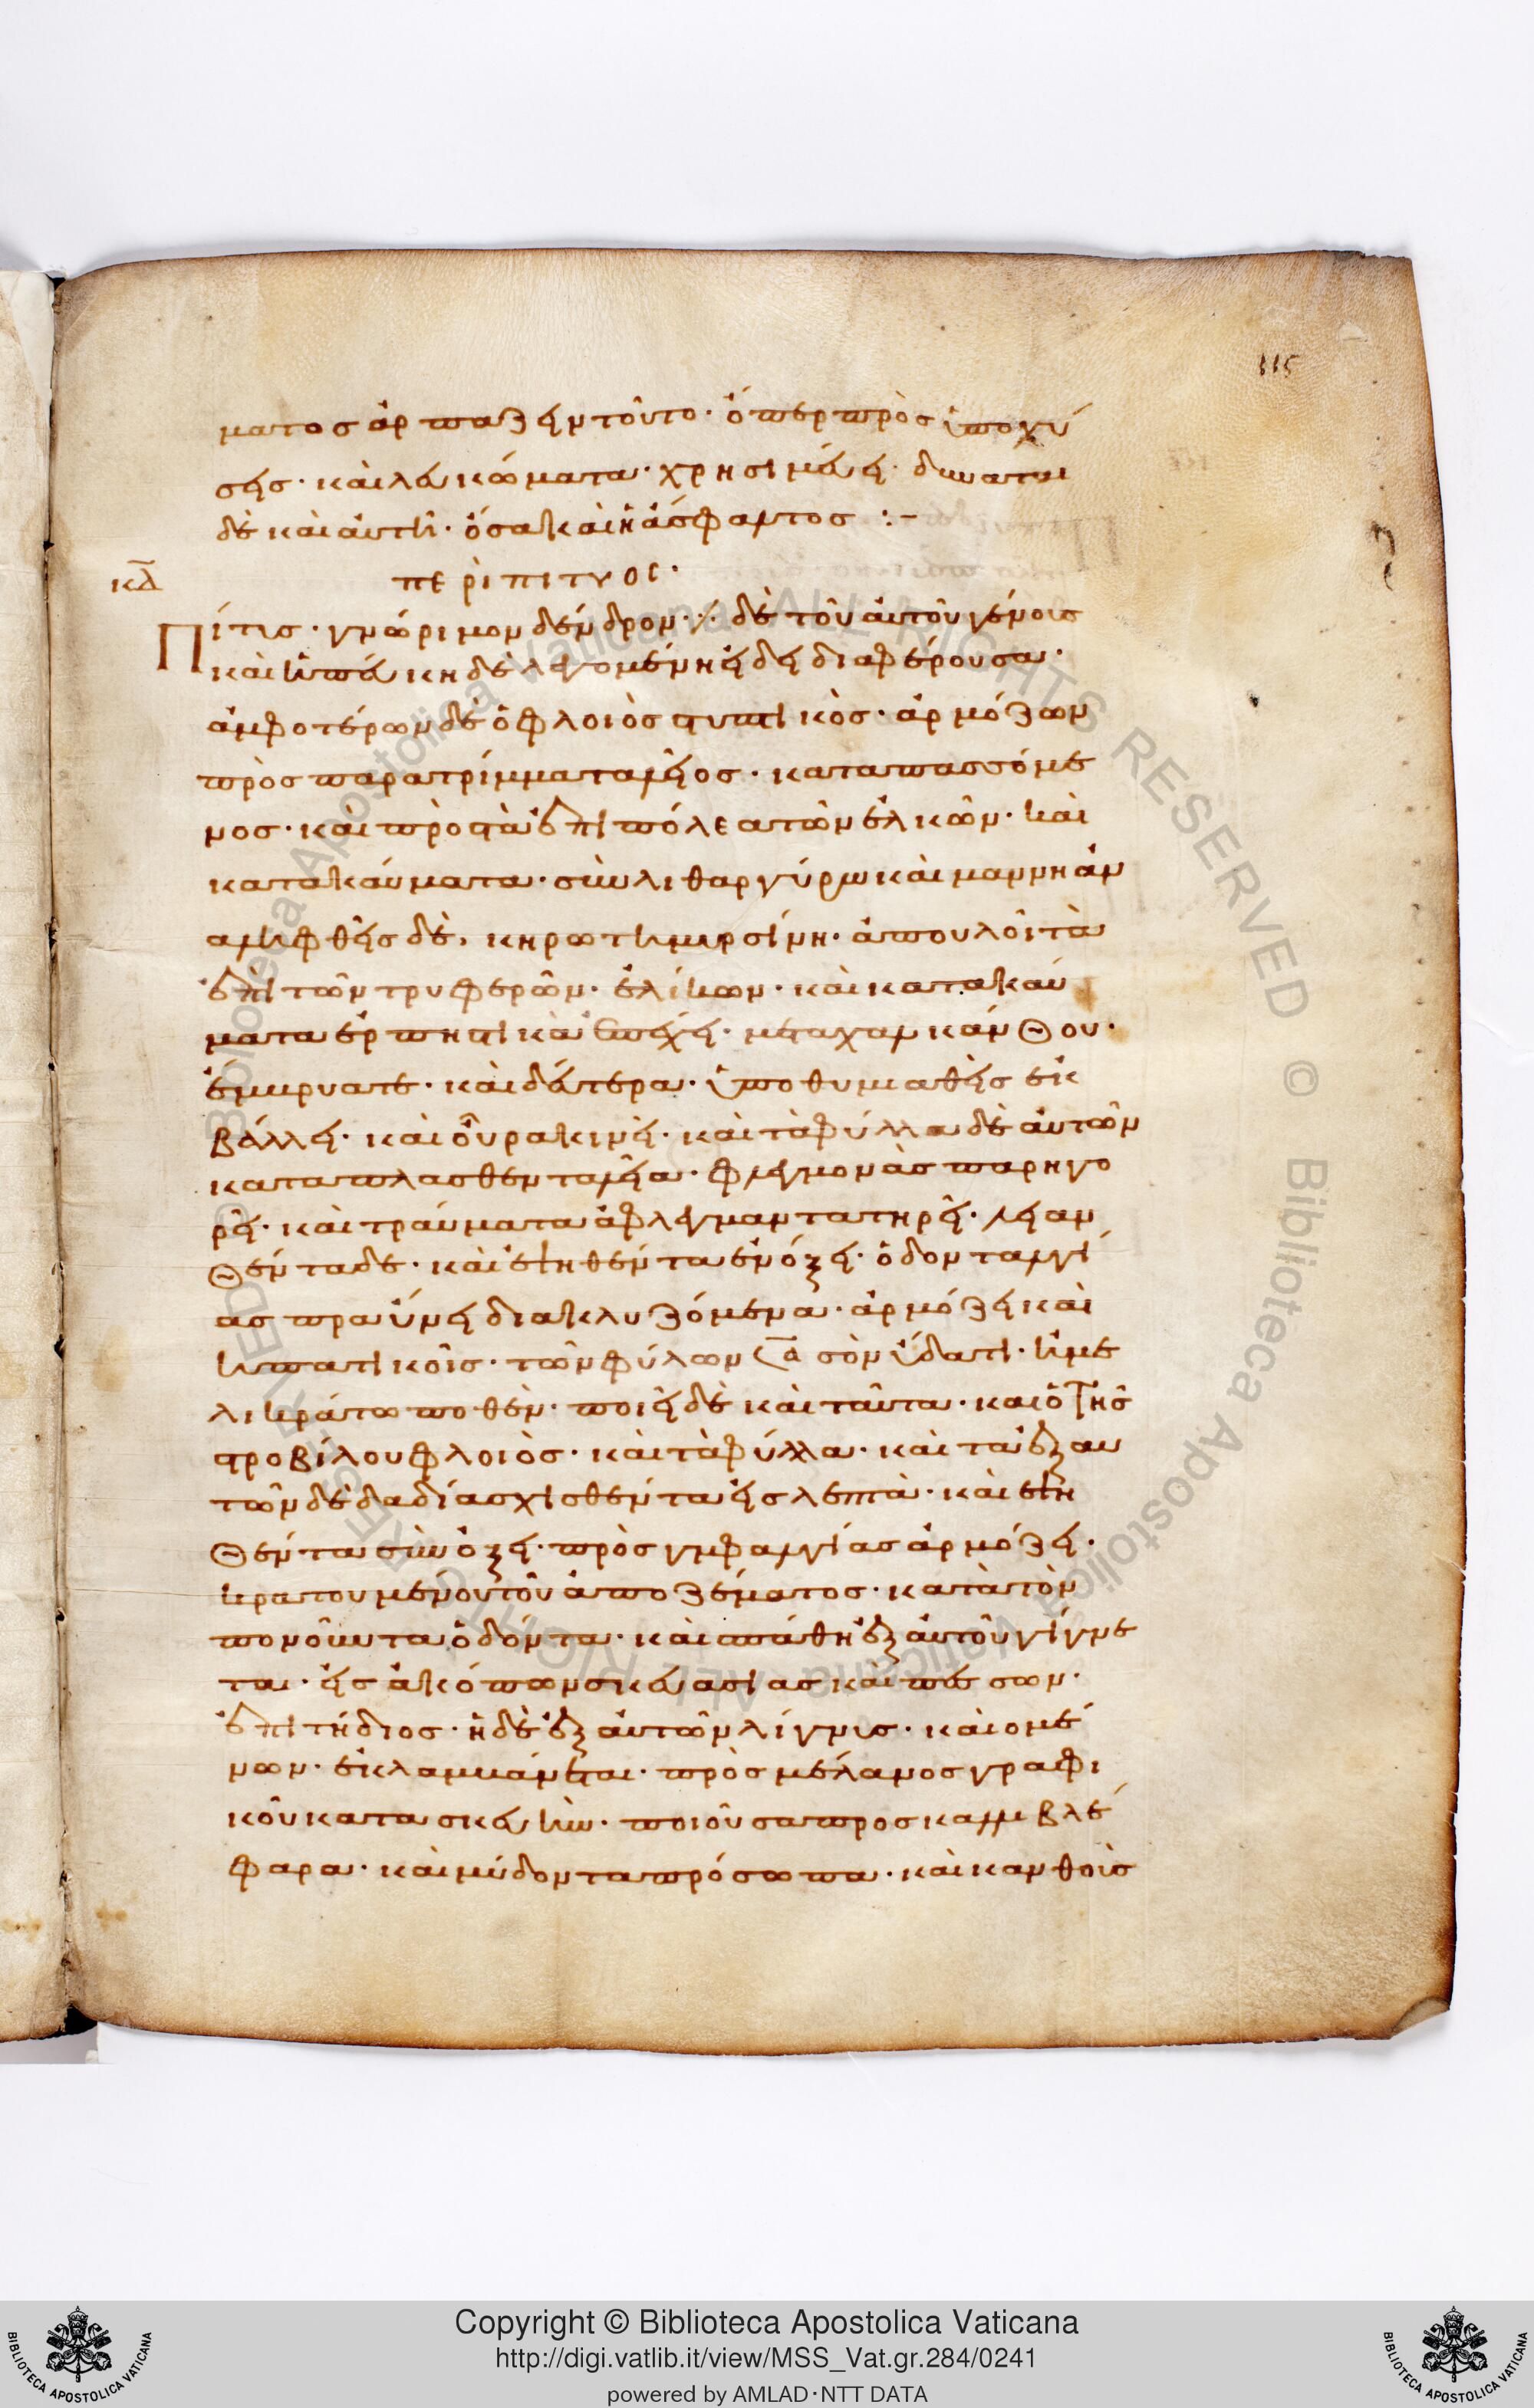 115
ματος ἁρπάζειν τοῦτο· ὅπερ πρὸς ὑποχύ
σεις· καὶ λευκώματα· χρησιμεύει· δύναται
δὲ καὶ αὐτὴ· ὅσα καὶ ἡ ἄσφαλτος :-
κδ
περὶ πίτυος·
Πίτις· γνώριμον δένδρον· ./. δὲ τοῦ αὐτοῦ γένοις
καὶ ἡ πεύκη δὲ λεγομένη εἴδει διαφέρουσα·
ἀμφοτέρων δὲ ὁ φλοιὸς στυπτικὸς· ἁρμόζων
πρὸς παρατρίμματα λεῖος· καταπασσόμε
νος· καὶ πρὸς τὰ ἐπιπόλεα τῶν ἑλκῶν· καὶ
κατακαύματα· σὺν λιθαργύρω καὶ μαννη ἀν
αληφθεὶς δὲ, κηρωτῆ μυρσίνη· ἀπουλοῖ τὰ
ἐπὶ τῶν τρυφερῶν· ἑλίκων· καὶ κατακαύ
ματα ἑρπηστικὰ ἐπέχει· μετα χαλκάνθου·
ἔμβρυα τε· καὶ δεύτερα· ὑποθυμιαθεὶς ἐκ
βάλλει· καὶ οὖρα κινεῖ· καὶ τὰ φύλλα δὲ αὐτῶν
καταπλασθέντα λεῖα· φλεγμονὰς παρηγο
ρεῖ· καὶ τραύματα ἀφλέγμαντα τηρεῖ· λεαν
θέντα δὲ· καὶ ἑψηθέντα ἐν ὄξει· ὀδονταλγί
ας πραΰνει διακλυζόμενα· ἁρμόζει καὶ
ἡπατικοῖς· τῶν φύλων <α σὸν ὕδατι· ἢ με
λικράτω ποθὲν· ποιεῖ δὲ καὶ ταῦτα· καὶ ὁ τῆς
στροβίλου φλοιὸς· καὶ τὰ φύλλα· καὶ τα ἐξ αυ
τῶν δὲ δαδία σχισθέντα εἰς λεπτὰ· καὶ ἑψη
θέντα σὺν ὄξει· πρὸς γιμφαλγίας ἁρμόζει·
κρατουμένου τοῦ ἀποζέματος· κατὰ τὸν
πονοῦντα ὀδόντα· καὶ σπάθη ἐξ αὐτοῦ γίγνε
ται· εἰς ἀκόπων σκευασίας καὶ πεσσων·
ἐπιτήδιος· ἡ δὲ ἐξ αὐτῶν λίγνις· καιομέ
νων· ἐκλαμβάνεται· πρὸς μέλανος γραφι
κοῦ κατασκευὴν· ποιοῦσα προς καλλιβλέ
φαρα· καὶ μύδοντα πρόσωπα· καὶ κανθοὶς
Copyright © Biblioteca Apostolica Vaticana
http://digi.vatlib.it/view/MSS_Vat.gr.284/0241
powered by AMLAD·NTT DATA
BIBLIOTECA APOSTOLICA VATICANA
BIBLIOTECA APOSTOLICA VATICANA